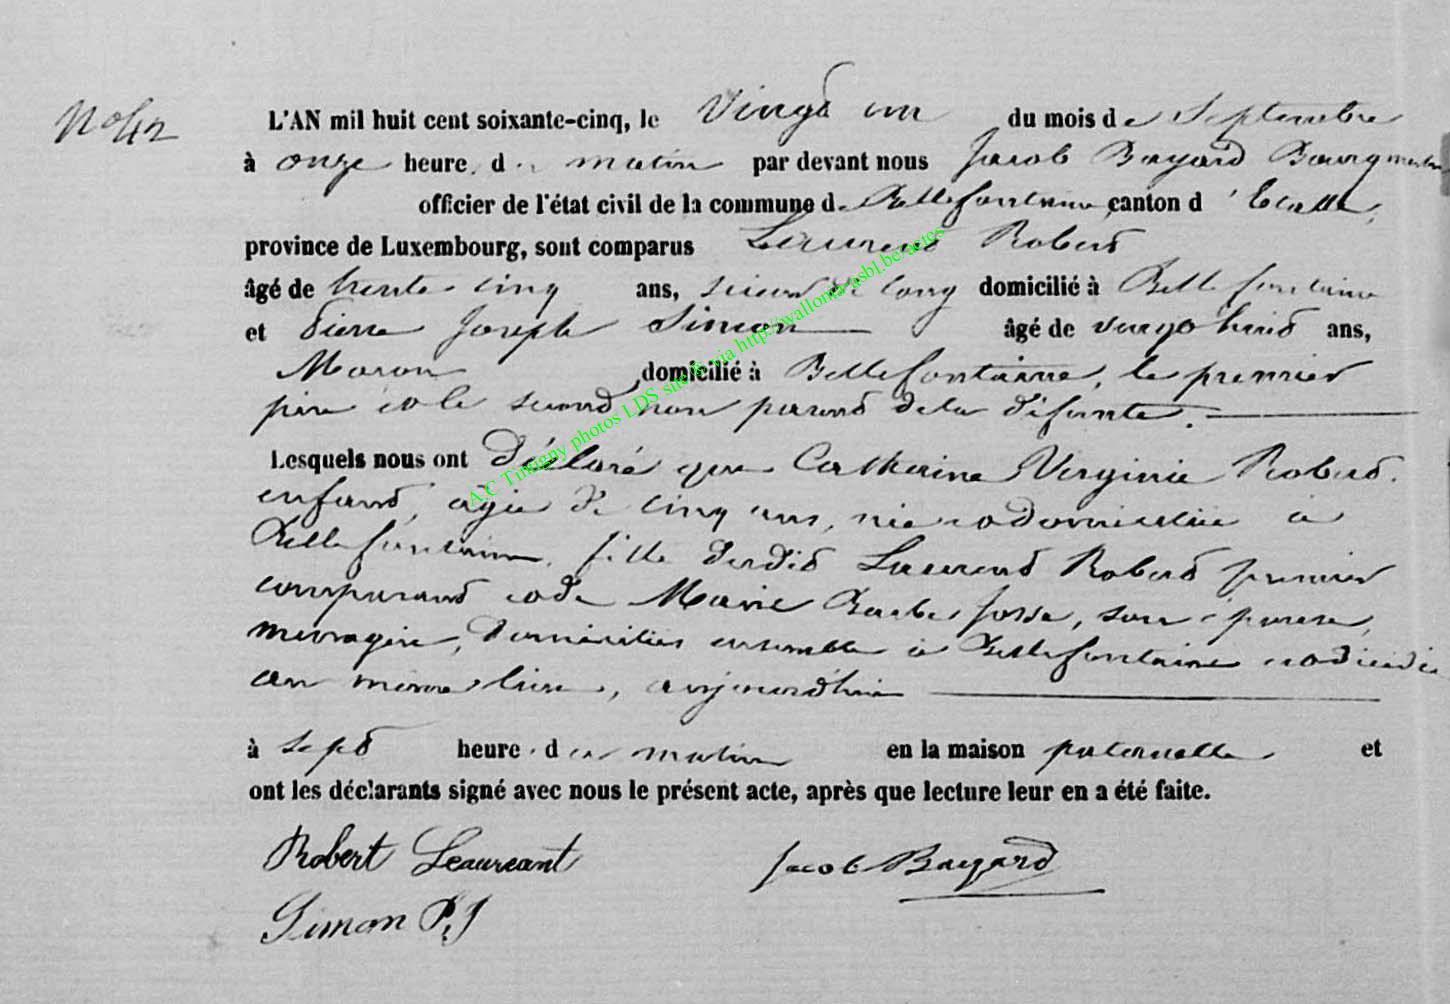 No 42
L'AN mil huit cent soixante-cinq, le Vingt un du mois de Septembre
à onze heure, du matin par devant nous Jacob Bayard Bourgmestre
officier de l'état civil de la commune de Bellefontaine canton d'Etalle,
province de Luxembourg, sont comparus Laurent Robert
âgé de trente cinq ans, scieur de long domicilié à Bellefontaine
et Pierre Joseph Simon âgé de vingt huit ans,
Maçon domicilié à Bellefontaine, le premier
père et le second non parent de la défunte.
Lesquels nous ont Déclaré que Catherine Virginie Robert
enfant, agée de cinq ans, née et domiciliée à
Bellefontaine, fille dudit Laurent Robert premier
comparant et de Marie Barbe Josse, son épouse,
ménagère, domiciliés ensemble à Bellefontaine est décédée
au même lieu, aujourd'hui
à sept heure, du matin en la maison paternelle et
ont les déclarants signé avec nous le présent acte, après que lecture leur en a été faite.
Robert Leaureant Jacob Bayard
Simon P.J
A.C Tintigny photos LDS via http://wallonia-asbl.be/actes